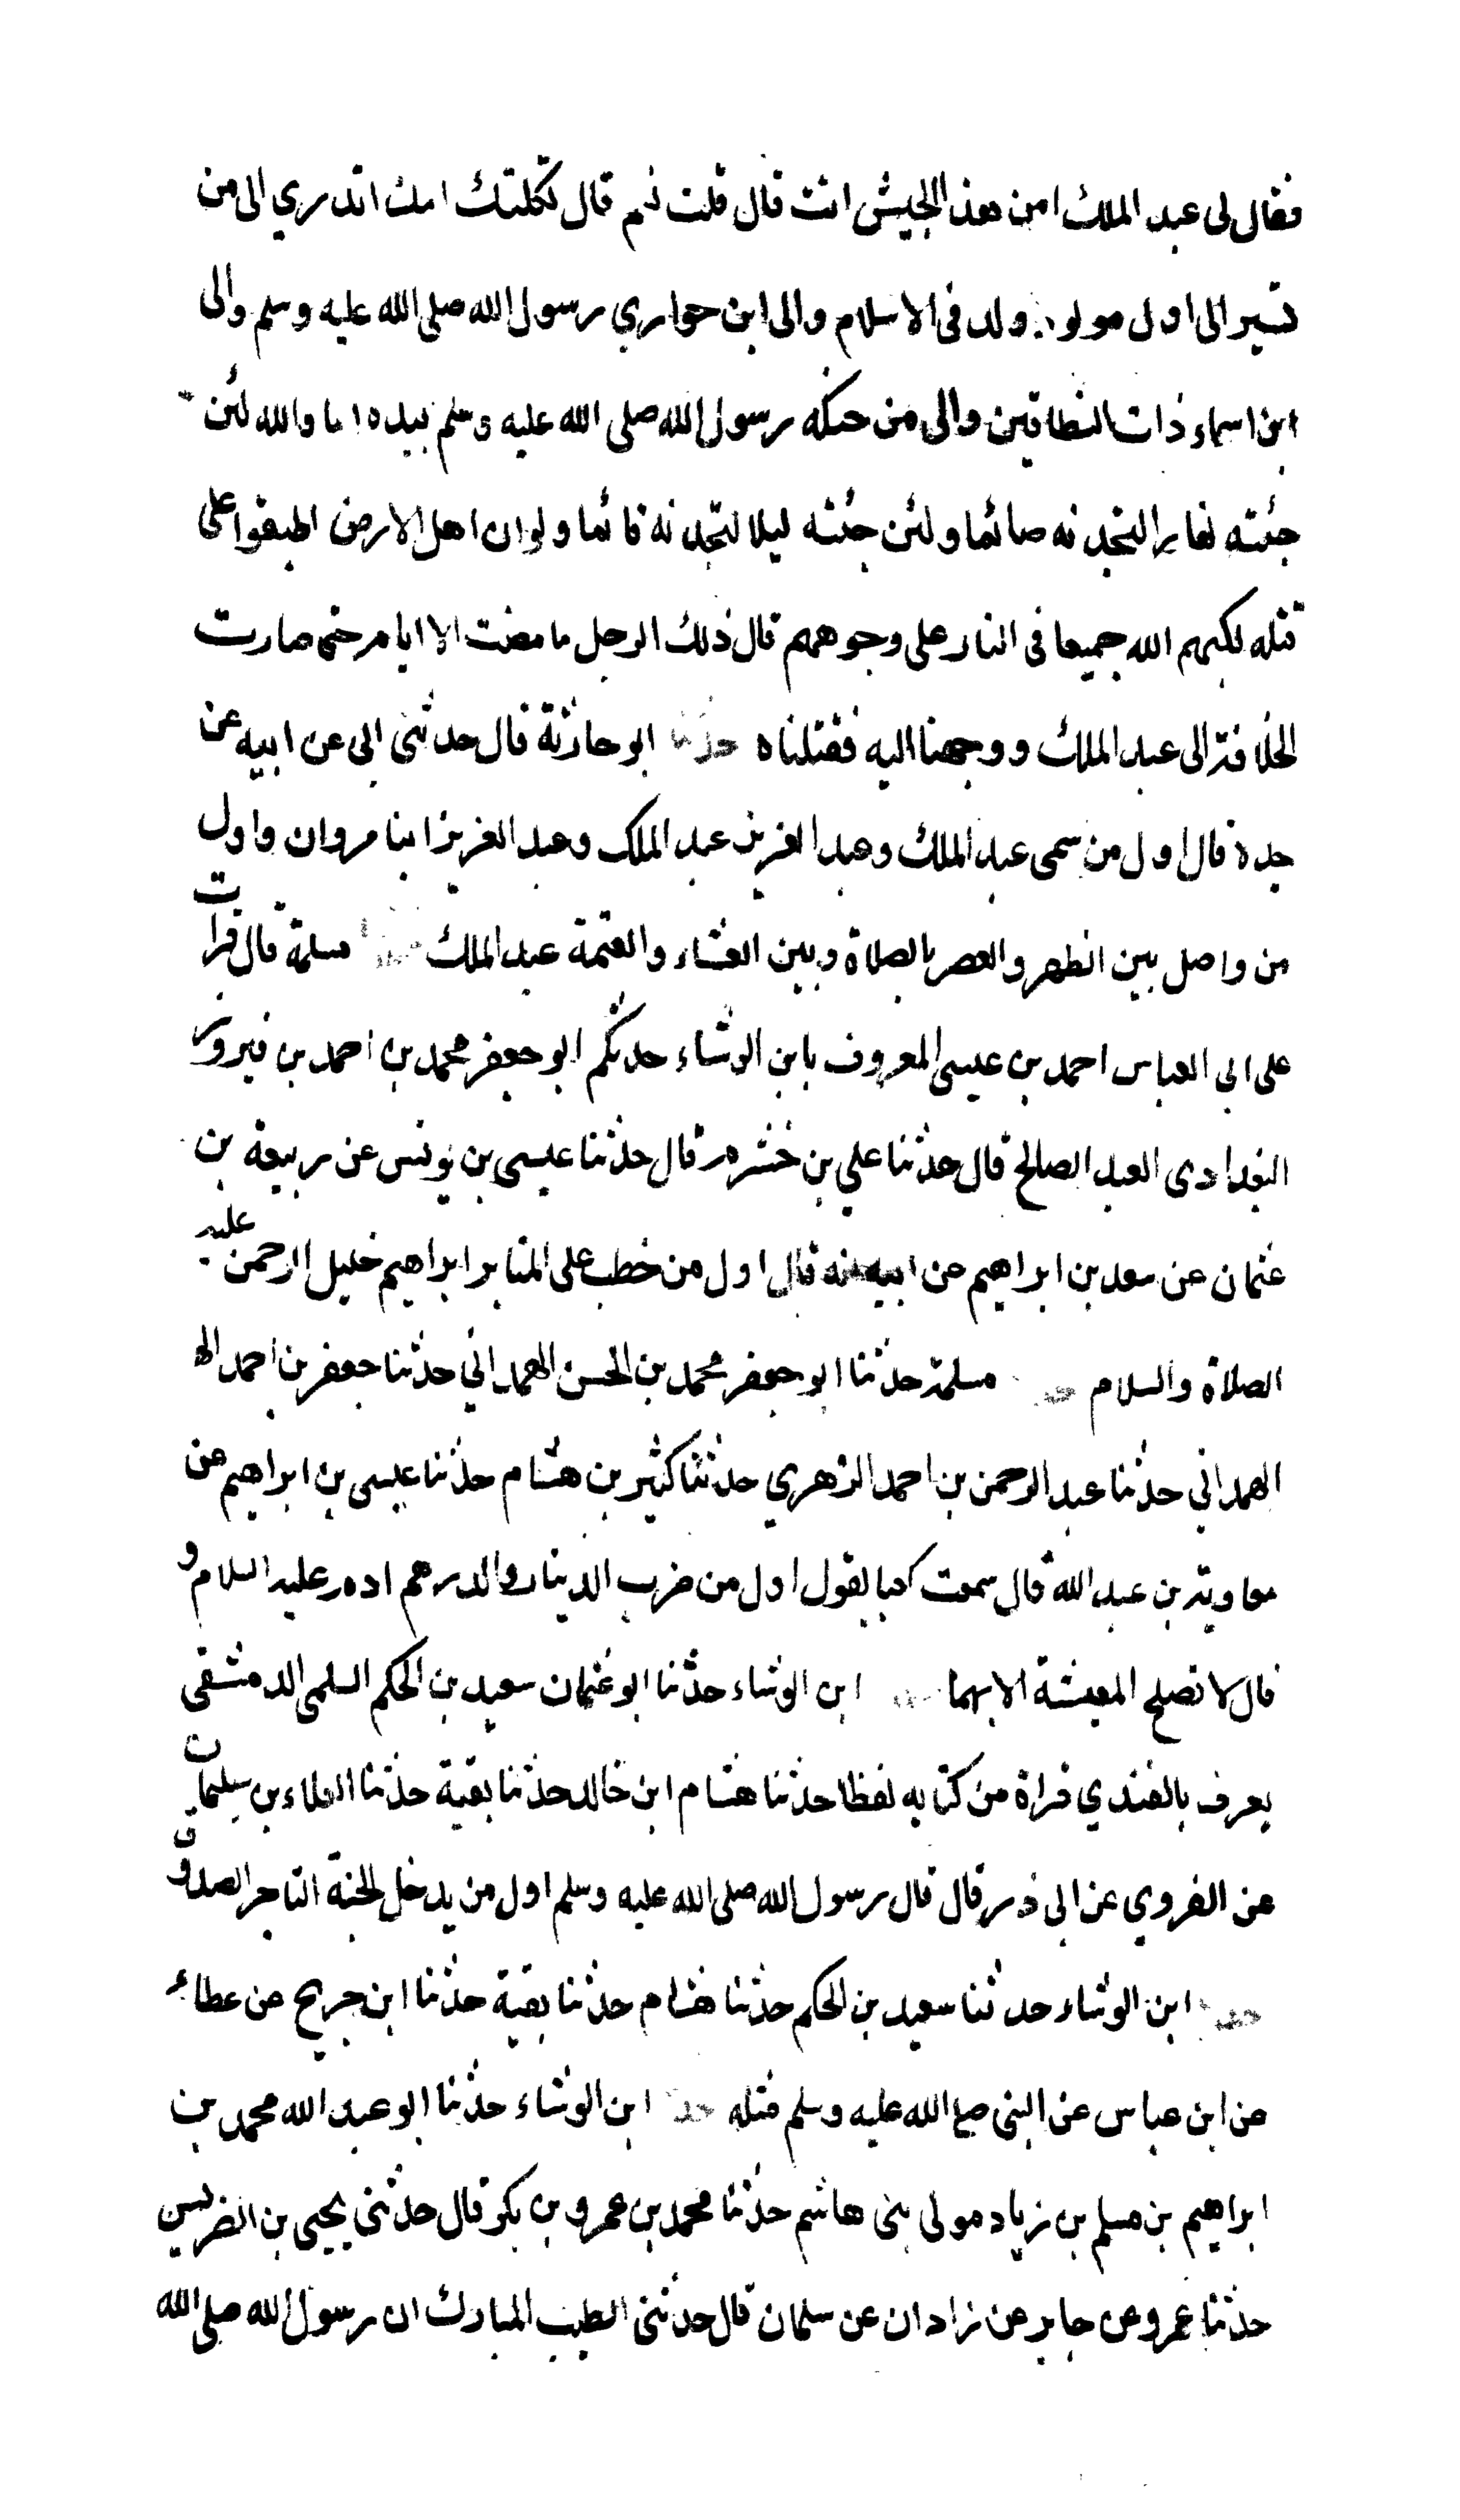 فقال لى عبد الملك امن هذا الجيش انت قال قلت نعم قال ثكلتك امك اتدري الى من
تسير الى اول مولود ولد فى الاسلام والى ابن حواري رسول الله صلى الله عليه وسلم والى
ابن اسماء ذات النطاقين والى من حنكه رسول الله صلى الله عليه وسلم بيده اما والله لئن
جئته نهارا لتجدنه صائما ولئن جئته ليلا لتجدنه قائما ولو ان اهل الارض اطبقوا على
قتله لكبهم الله جميعا فى النار على وجوههم قال ذلك الرجل ما مضت الا ايام حتى صارت
الخلافة الى عبد الملك ووجهنا اليه فقتلناه حدثنا ابو حارثة قال حدثنى ابى عن ابيه عن
جده قال اول من سمى عبد الملك وعبد العزيز عبد الملك وعبد العزيز ابنا مروان واول
من واصل بين الظهر والعصر بالصلاة وبين العشاء والعتمة عبد الملك حدثنا مسلمة قال قرات
على ابى العباس احمد بن عيسى المعروف بابن الوشاء حدثكم ابو جعفر محمد بن احمد بن فيروز
البغدادى العبد الصالح قال حدثنا علي بن خشرم قال حدثنا عيسى بن يونس عن ربيعة بن
عثمان عن سعد بن ابراهيم عن ابيه قال اول من خطب على المنابر ابراهيم خليل الرحمن عليه
الصلاة والسلام مسلمة حدثنا ابو جعفر محمد بن الحسن الهمداني حدثنا جعفر بن احمد اله
الهمداني حدثنا عبد الرحمن بن احمد الزهري حدثنا كثير بن هشام حدثنا عيسى بن ابراهيم عن
معاوية بن عبد الله قال سمعت كعبا يقول اول من ضرب الدينار والدرهم ادم عليه السلام و
قال لا تصلح المعيشة الا بهما ابن الوشاء حدثنا ابو عثمان سعيد بن الحكم السلمى الدمشقى
يعرف بالفندي قراة من كتابه لفظا حدثنا هشام ابن خالد حدثنا بقية حدثنا العلاء بن سليمان
عن الفروي عن ابى ذر قال قال رسول الله صلى الله عليه وسلم اول من يدخل الجنة التاجر الصدوق
ابن الوشاء حدثنا سعيد بن الحكم حدثنا هشام حدثنا بقية حدثنا ابن جريج عن عطاء
عن ابن عباس عن النبى صلع الله عليه وسلم مثله ابن الوشاء حدثنا ابو عبد الله محمد بن
ابراهيم بن مسلم بن زياد مولى بنى هاشم حدثنا محمد بن عمرو بن بكر قال حدثنى يحيى بن الضريس
حدثنا عمرو عن جابر عن زاذان عن سلمان قال حدثنى الطيب المبارك ان رسول الله صلى الله